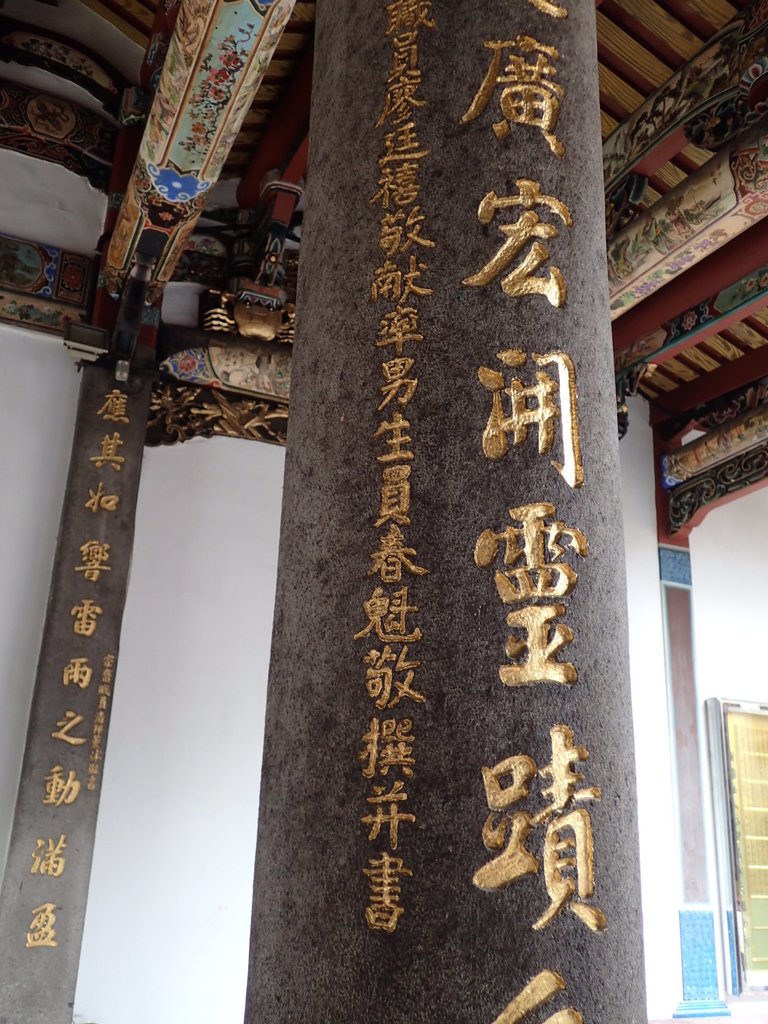 廣宏開靈蹟
職員廖廷禧敬献率男生員春魁敬撰并書
應其如響雷雨之動滿盈